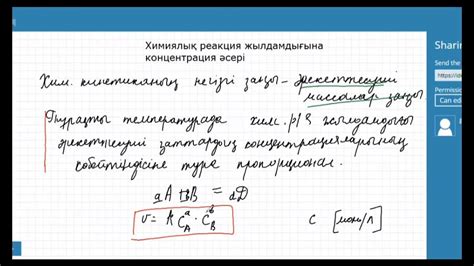 Химиялық реакция жылдамдығына
концентрация әсері
Хим. кинетиканың негізгі заңы – әрекеттесуші
массалар заңы.
Тұрақты температурада хим. р/я жылдамдығы
әрекеттесуші заттардың концентрацияларының
көбейтіндісіне тура пропорционал.
aA + bB = dD
v = k C_A^a · C_B^b
C [моль/л]
Sharin
Send the
https://
Permission
Can ed